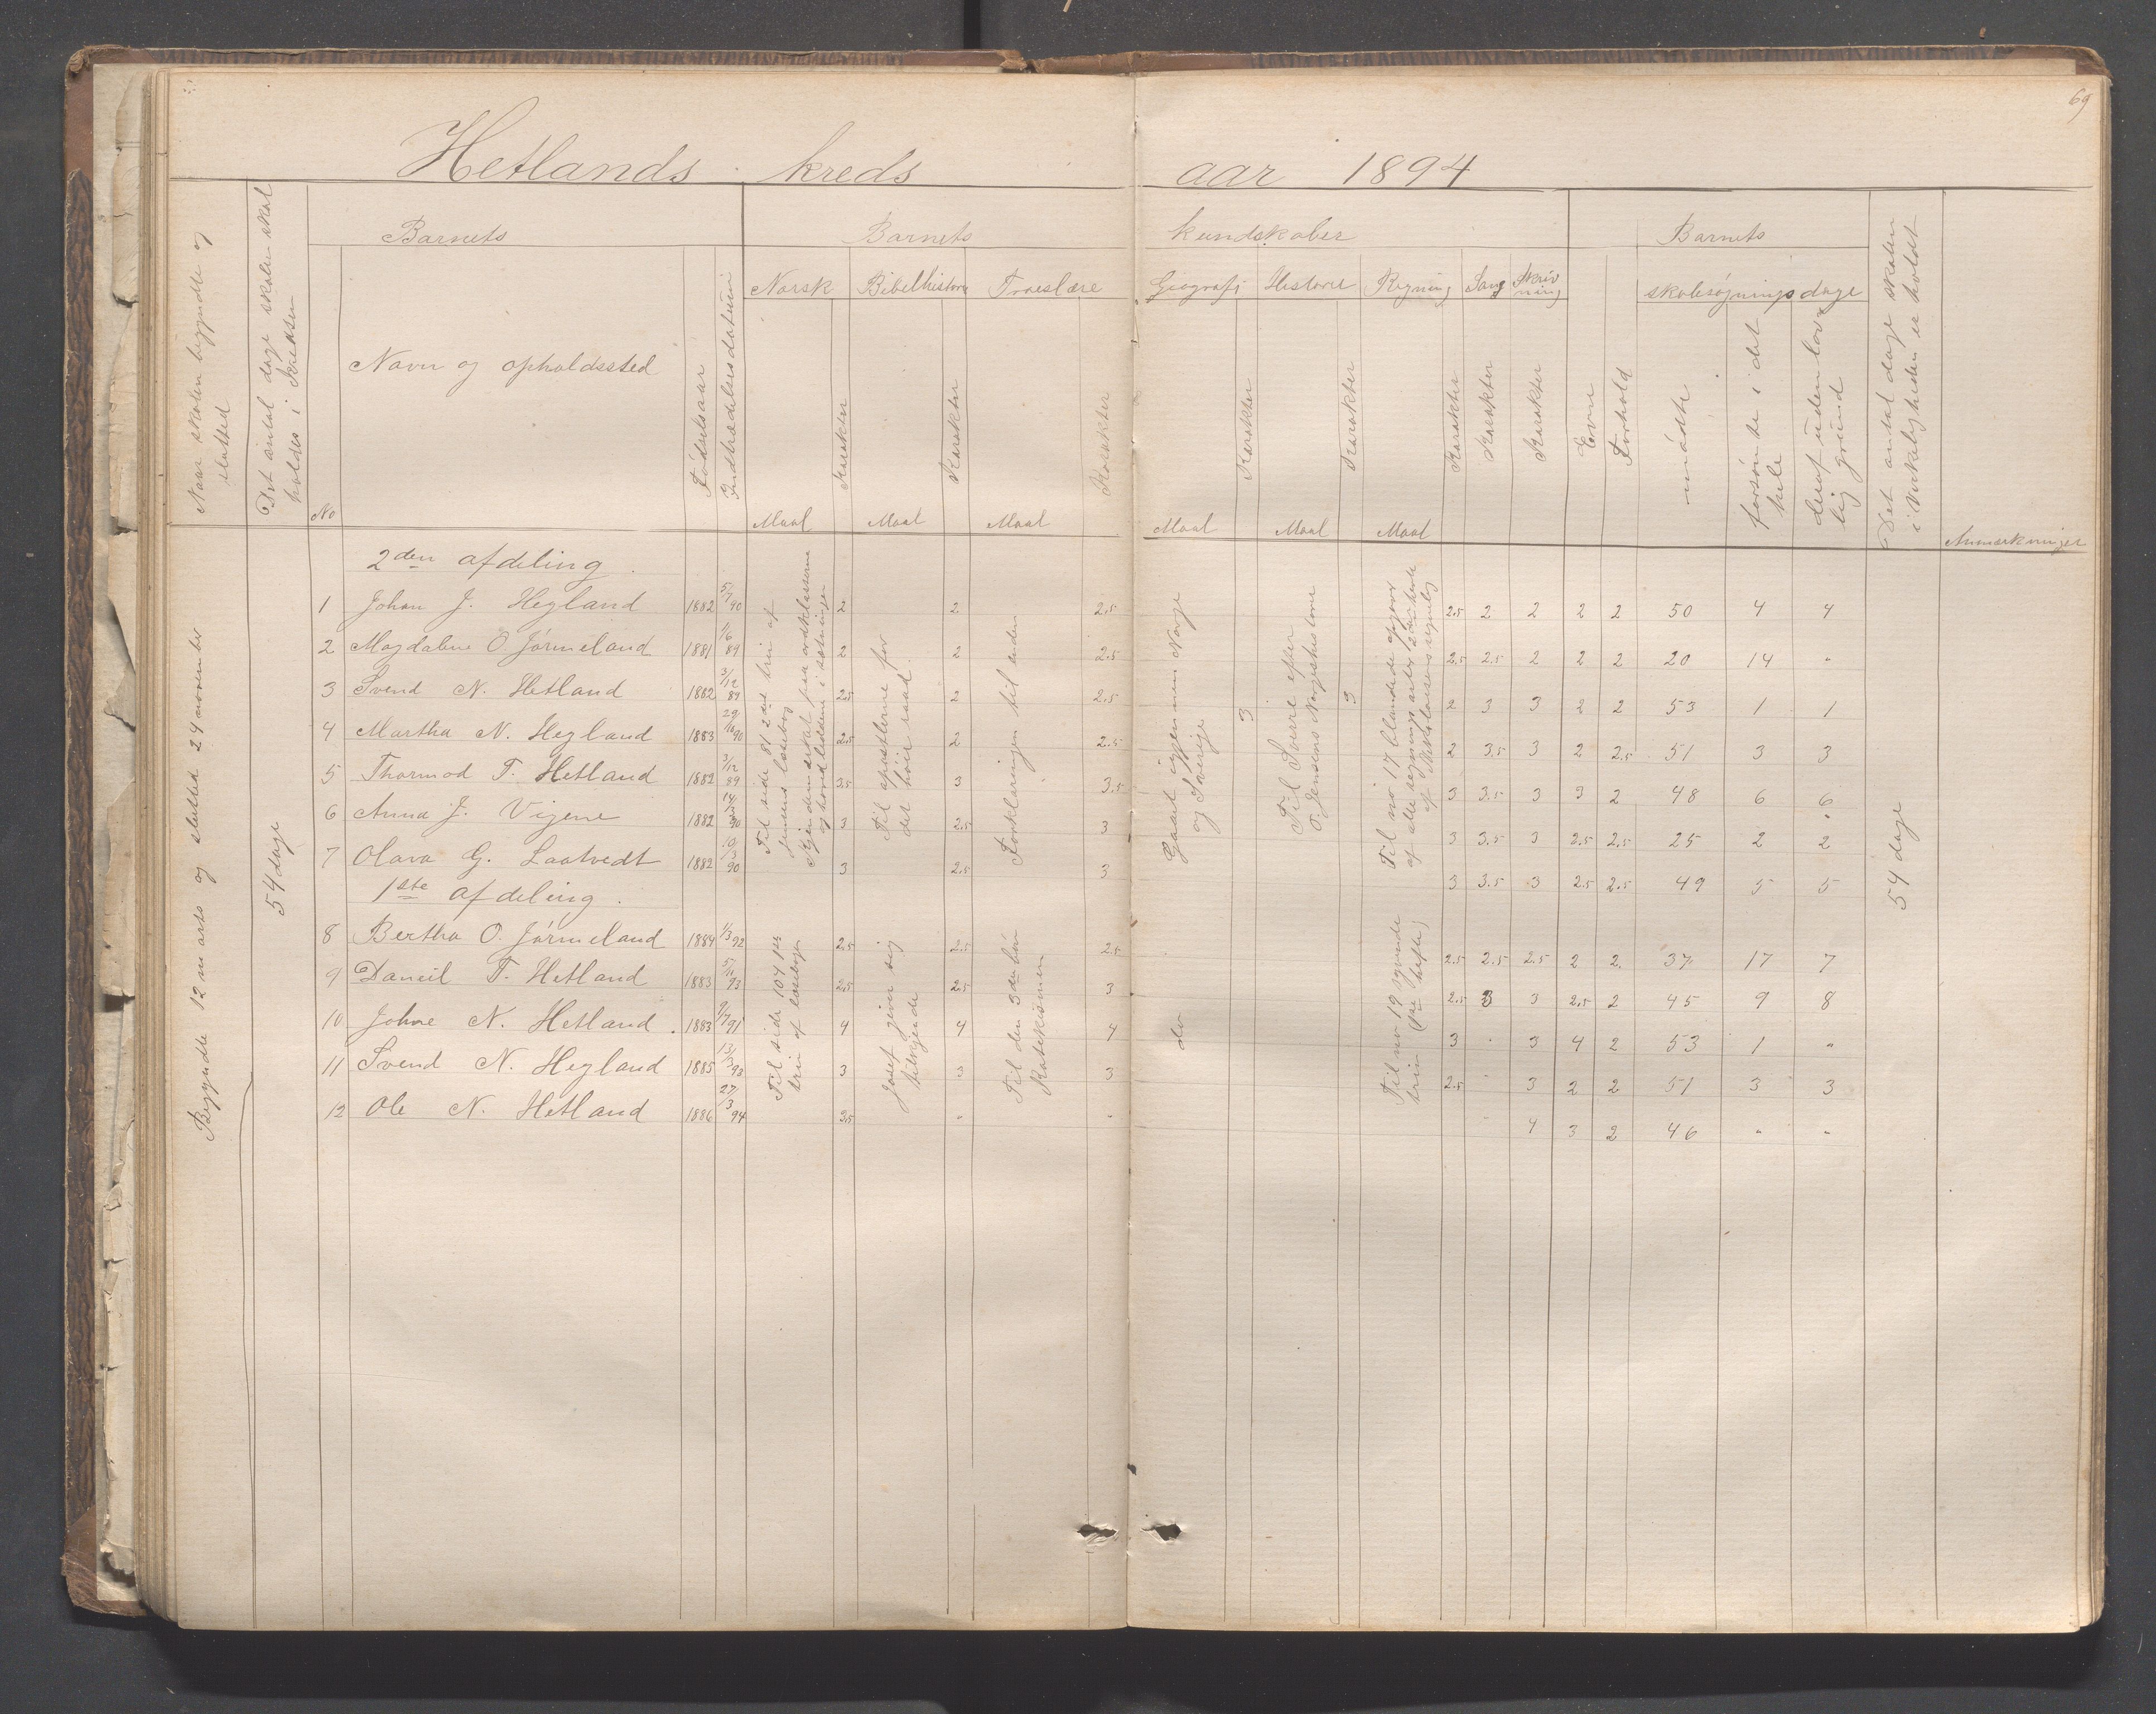 69
Hetlands kreds aar 1894
Naar skolen begyndte og slutted
Det antal dage skolen skal holdes i kredsen
Barnets
No
Navn og opholdssted
Fødselsaar
Indtrædelsesdatum
Barnets kundskaber
Norsk Bibelhistorie Troeslære Geografi Historie Regning Sang Skrivning
Maal Karakter Maal Karakter Maal Karakter Maal Karakter Maal Karakter Maal Karakter Karakter Karakter
Evne
Forhold
Barnets
skolesøgningsdage
mødte
forsømte i det hele
deraf uden lovlig grund
Det antal dage skolen i virkeligheden er holdt
Anmærkninger
Begyndte 12 marts og slutted 24 november
54 dage
2den afdeling.
1 Johan J. Hegland 1882 5/7 90 2 2 2.5 2.5 2 2 2 2 50 4 4
2 Magdalene O. Jørmeland 1881 1/6 89 2 2 2.5 2.5 2.5 2 2 2 20 14 "
3 Svend N. Hetland 1882 3/12 89 2.5 2 2.5 3 3 2 3 3 2 2 53 1 1
4 Martha N. Hegland 1883 29/10 90 2.5 2 2.5 2 3.5 3 2 2.5 51 3 3
5 Thormod T. Hetland 1882 3/12 89 3.5 3 3.5 3 3.5 3 3 2 48 6 6
6 Anna J. Vigene 1882 14/3 90 3 2.5 3 3 3.5 3 2.5 2.5 25 2 2
7 Olava G. Laatvedt 1882 10/3 90 3 2.5 3 3 3.5 3 2.5 2.5 49 5 5
Til side 81 2det trin af Jensens læsebog
Kjendemærket paa ordklasserne og hovedleddene i sætninger
Til apostlerne for det høie raad.
Forklaringen til enden
Gaaet igjennem Norge og Sverige
Til Sverre efter O. Jensens Norgeshistorie
Til no 17 blandede opgaver af alle regningsarter 2det hefte af Nicolaisens regnebog
54 dage
1ste afdeling.
8 Bertha O. Jørmeland 1884 1/3 92 2.5 2.5 2.5 2.5 2.5 2.5 2 2 37 17 7
9 Daneil T. Hetland 1883 5/11 93 2.5 2.5 3 2.5 3 3 2.5 2 45 9 8
10 Johne N. Hetland. 1883 9/7 91 4 4 4 3 " 3 4 2 53 1 "
11 Svend N. Hegland 1885 13/3 93 3 3 3 2.5 " 3 2 2 51 3 3
12 Ole N. Hetland 1886 27/3 94 3.5 " " " 4 3 2 46 " "
Til side 104 1ste trin af læsebogen
Josef giver sig tilkjende
Til den 3die bøn Katekismen
do
Til no 19 syvende trin (1ste hefte)